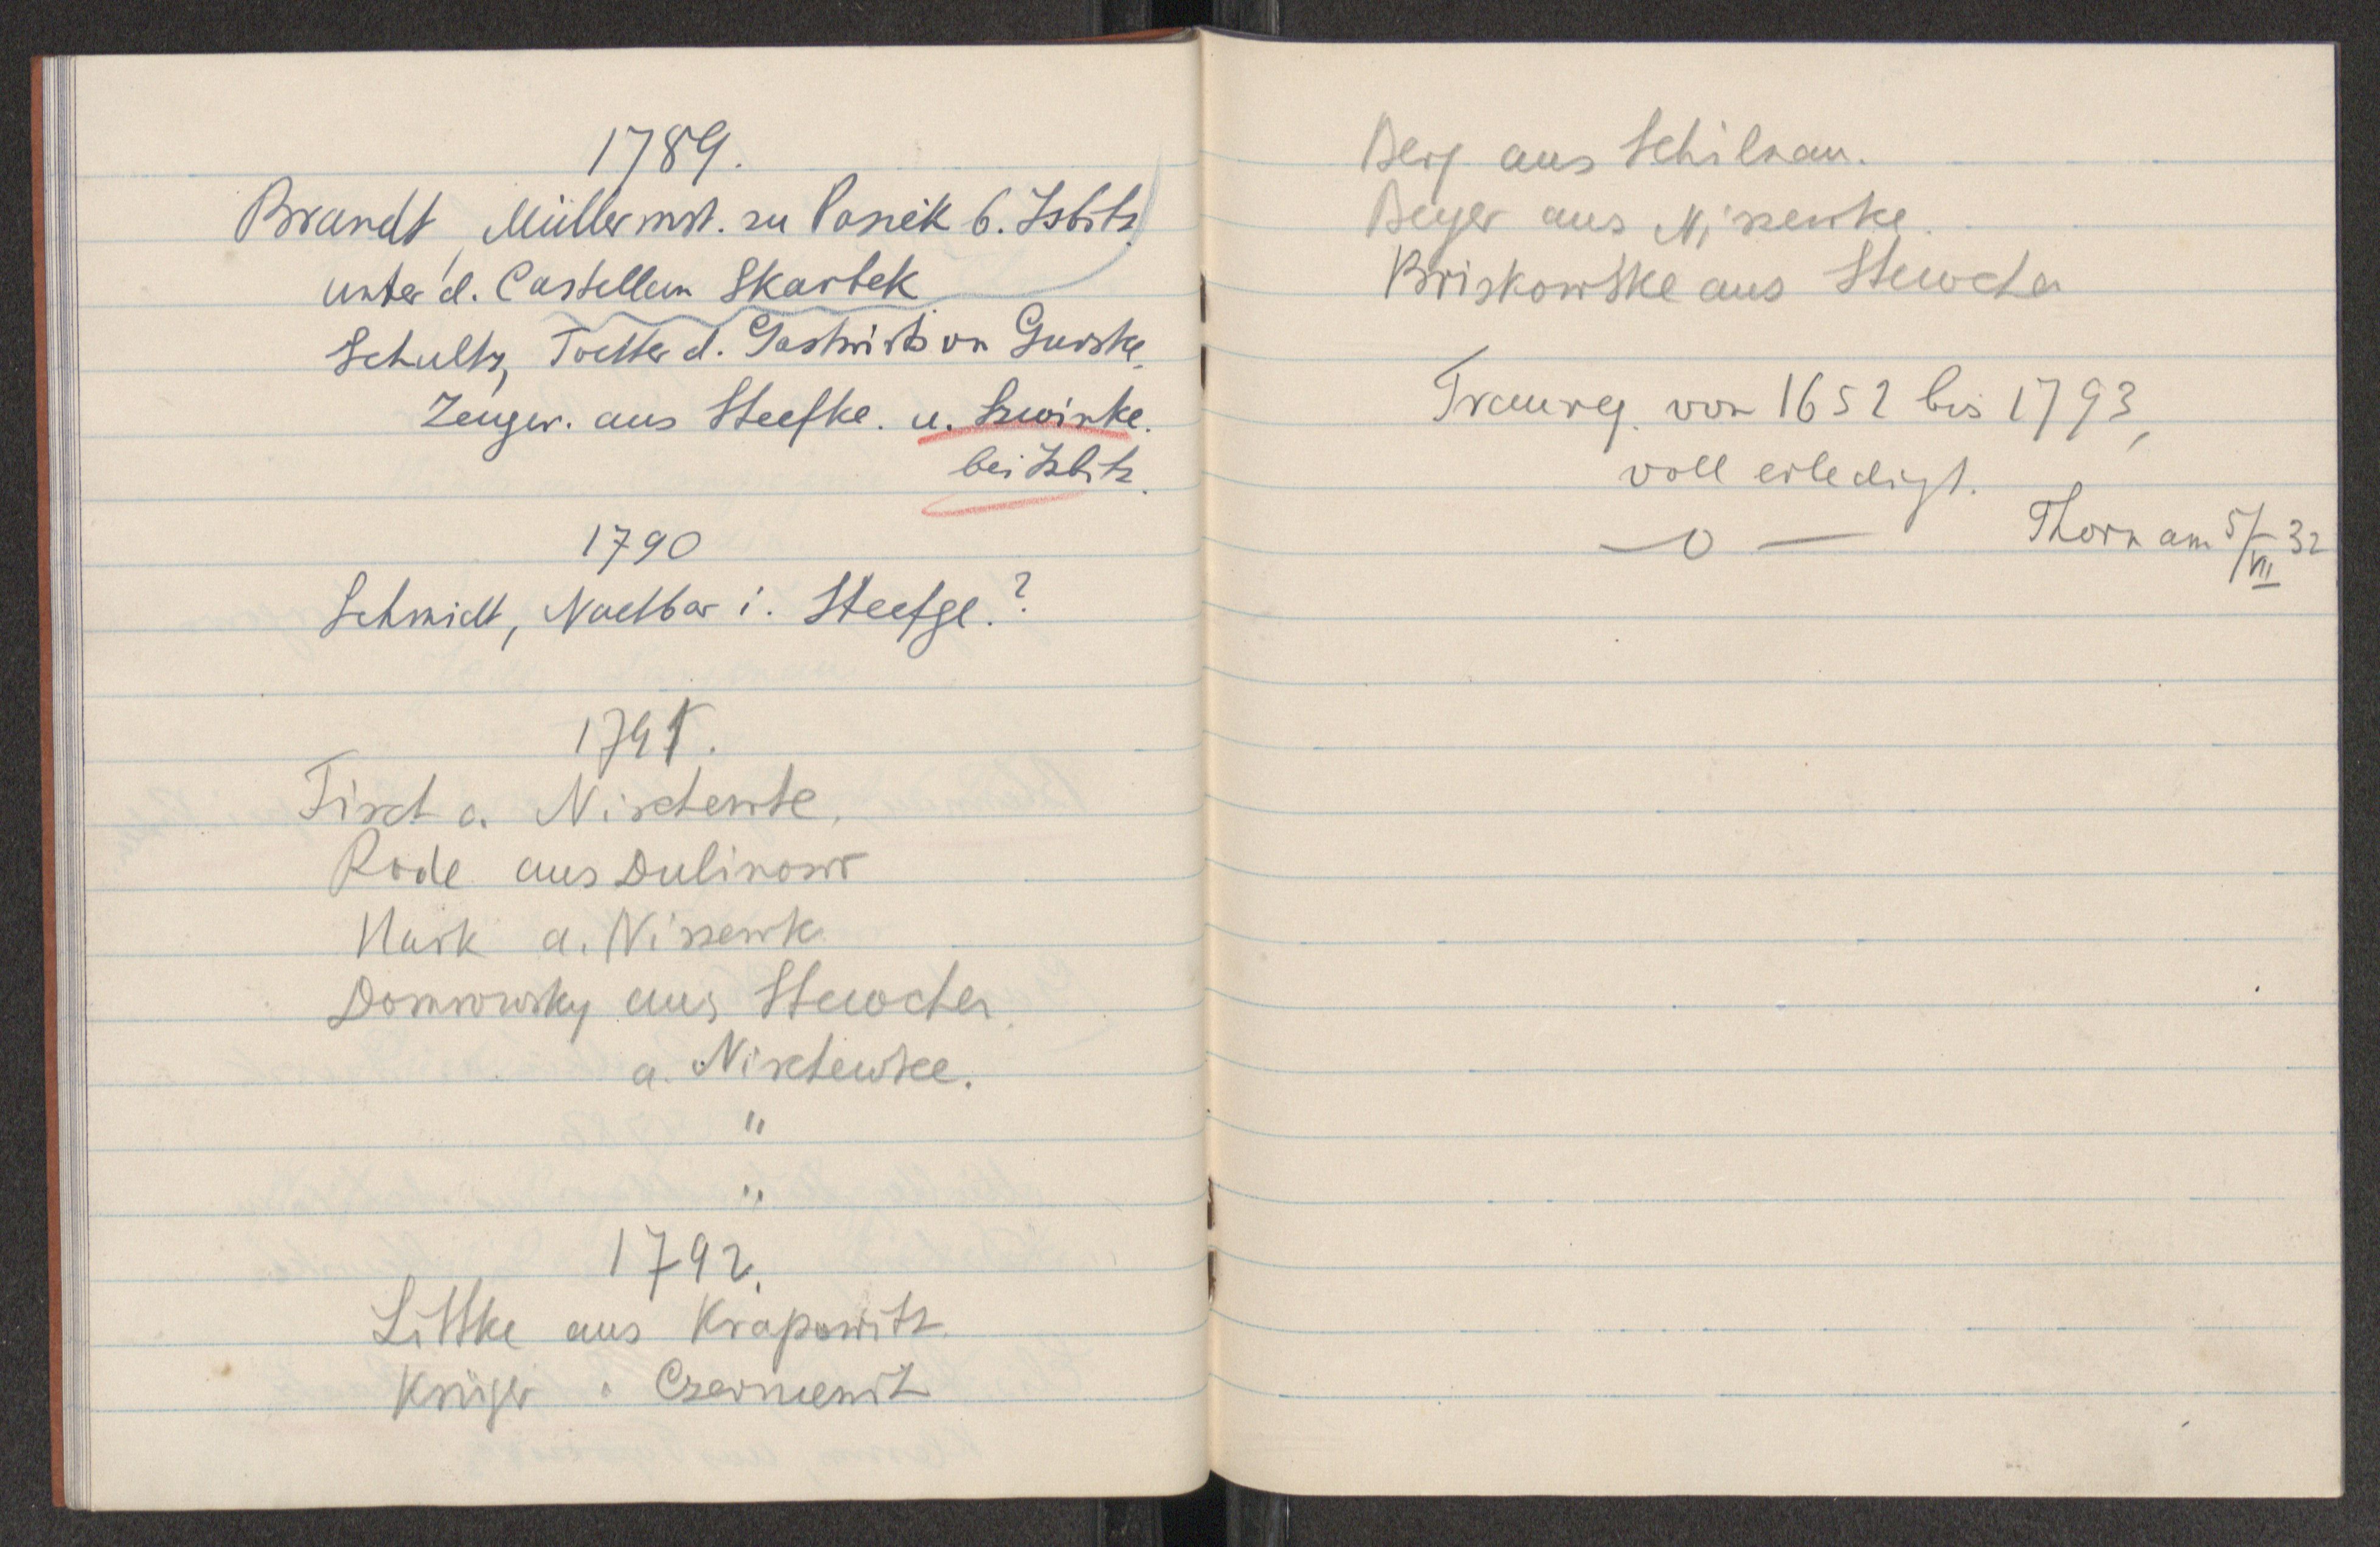 1789.
Brandt, Müllermst. zu Pasiek b. Isbitz
unter d. Castellan Skarbek
Schultz, Tochter d. Gastwirts von Gurske.
Zeuger. aus Steefke. u. Szwinke.
bei Isbitz.
1790
Schmidt, Nachbar i. Steefge.?
1791.
Fisch a. Nischewke.
Rode aus Dulinowo
Hark a. Nissewk
Domrowsky aus Stewocher
a. Nischewkee.
"
"
1792.
Littke aus Krapowitz.
Krüger " Czernewitz
Berg aus Schilnau.
Beyer aus Nissewke.
Briskowske aus Stewocha
Traureg. von 1652 bis 1793,
voll erledigt.
—o—
Thorn am 5/VII 32